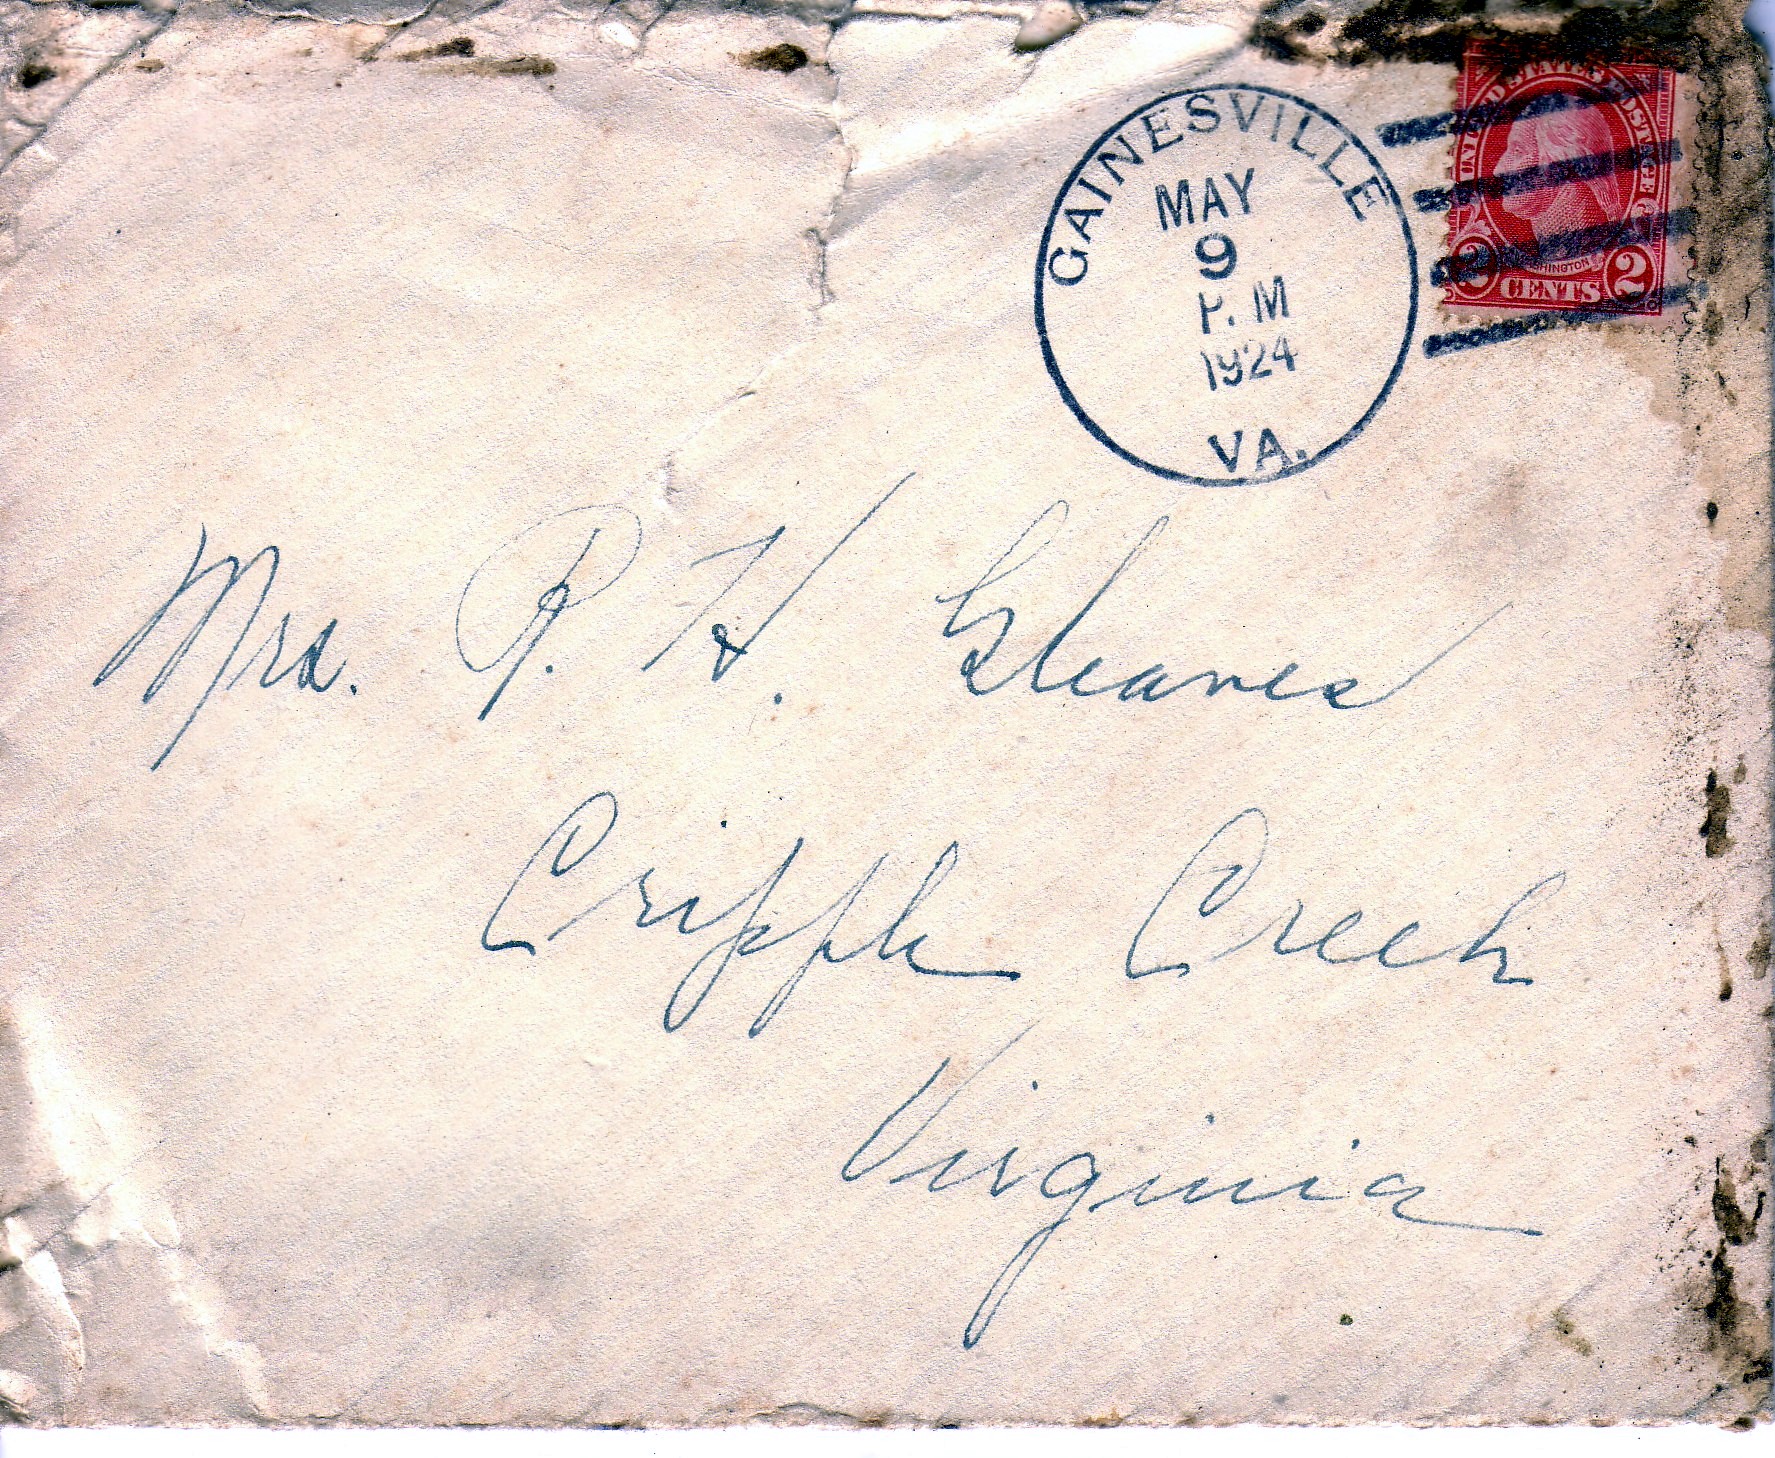 GAINESVILLE
MAY
9
P.M
1924
VA.
UNITED STATES POSTAGE
WASHINGTON
2 CENTS 2
Mrs. P. H. Gleaves
Cripple Creek
Virginia